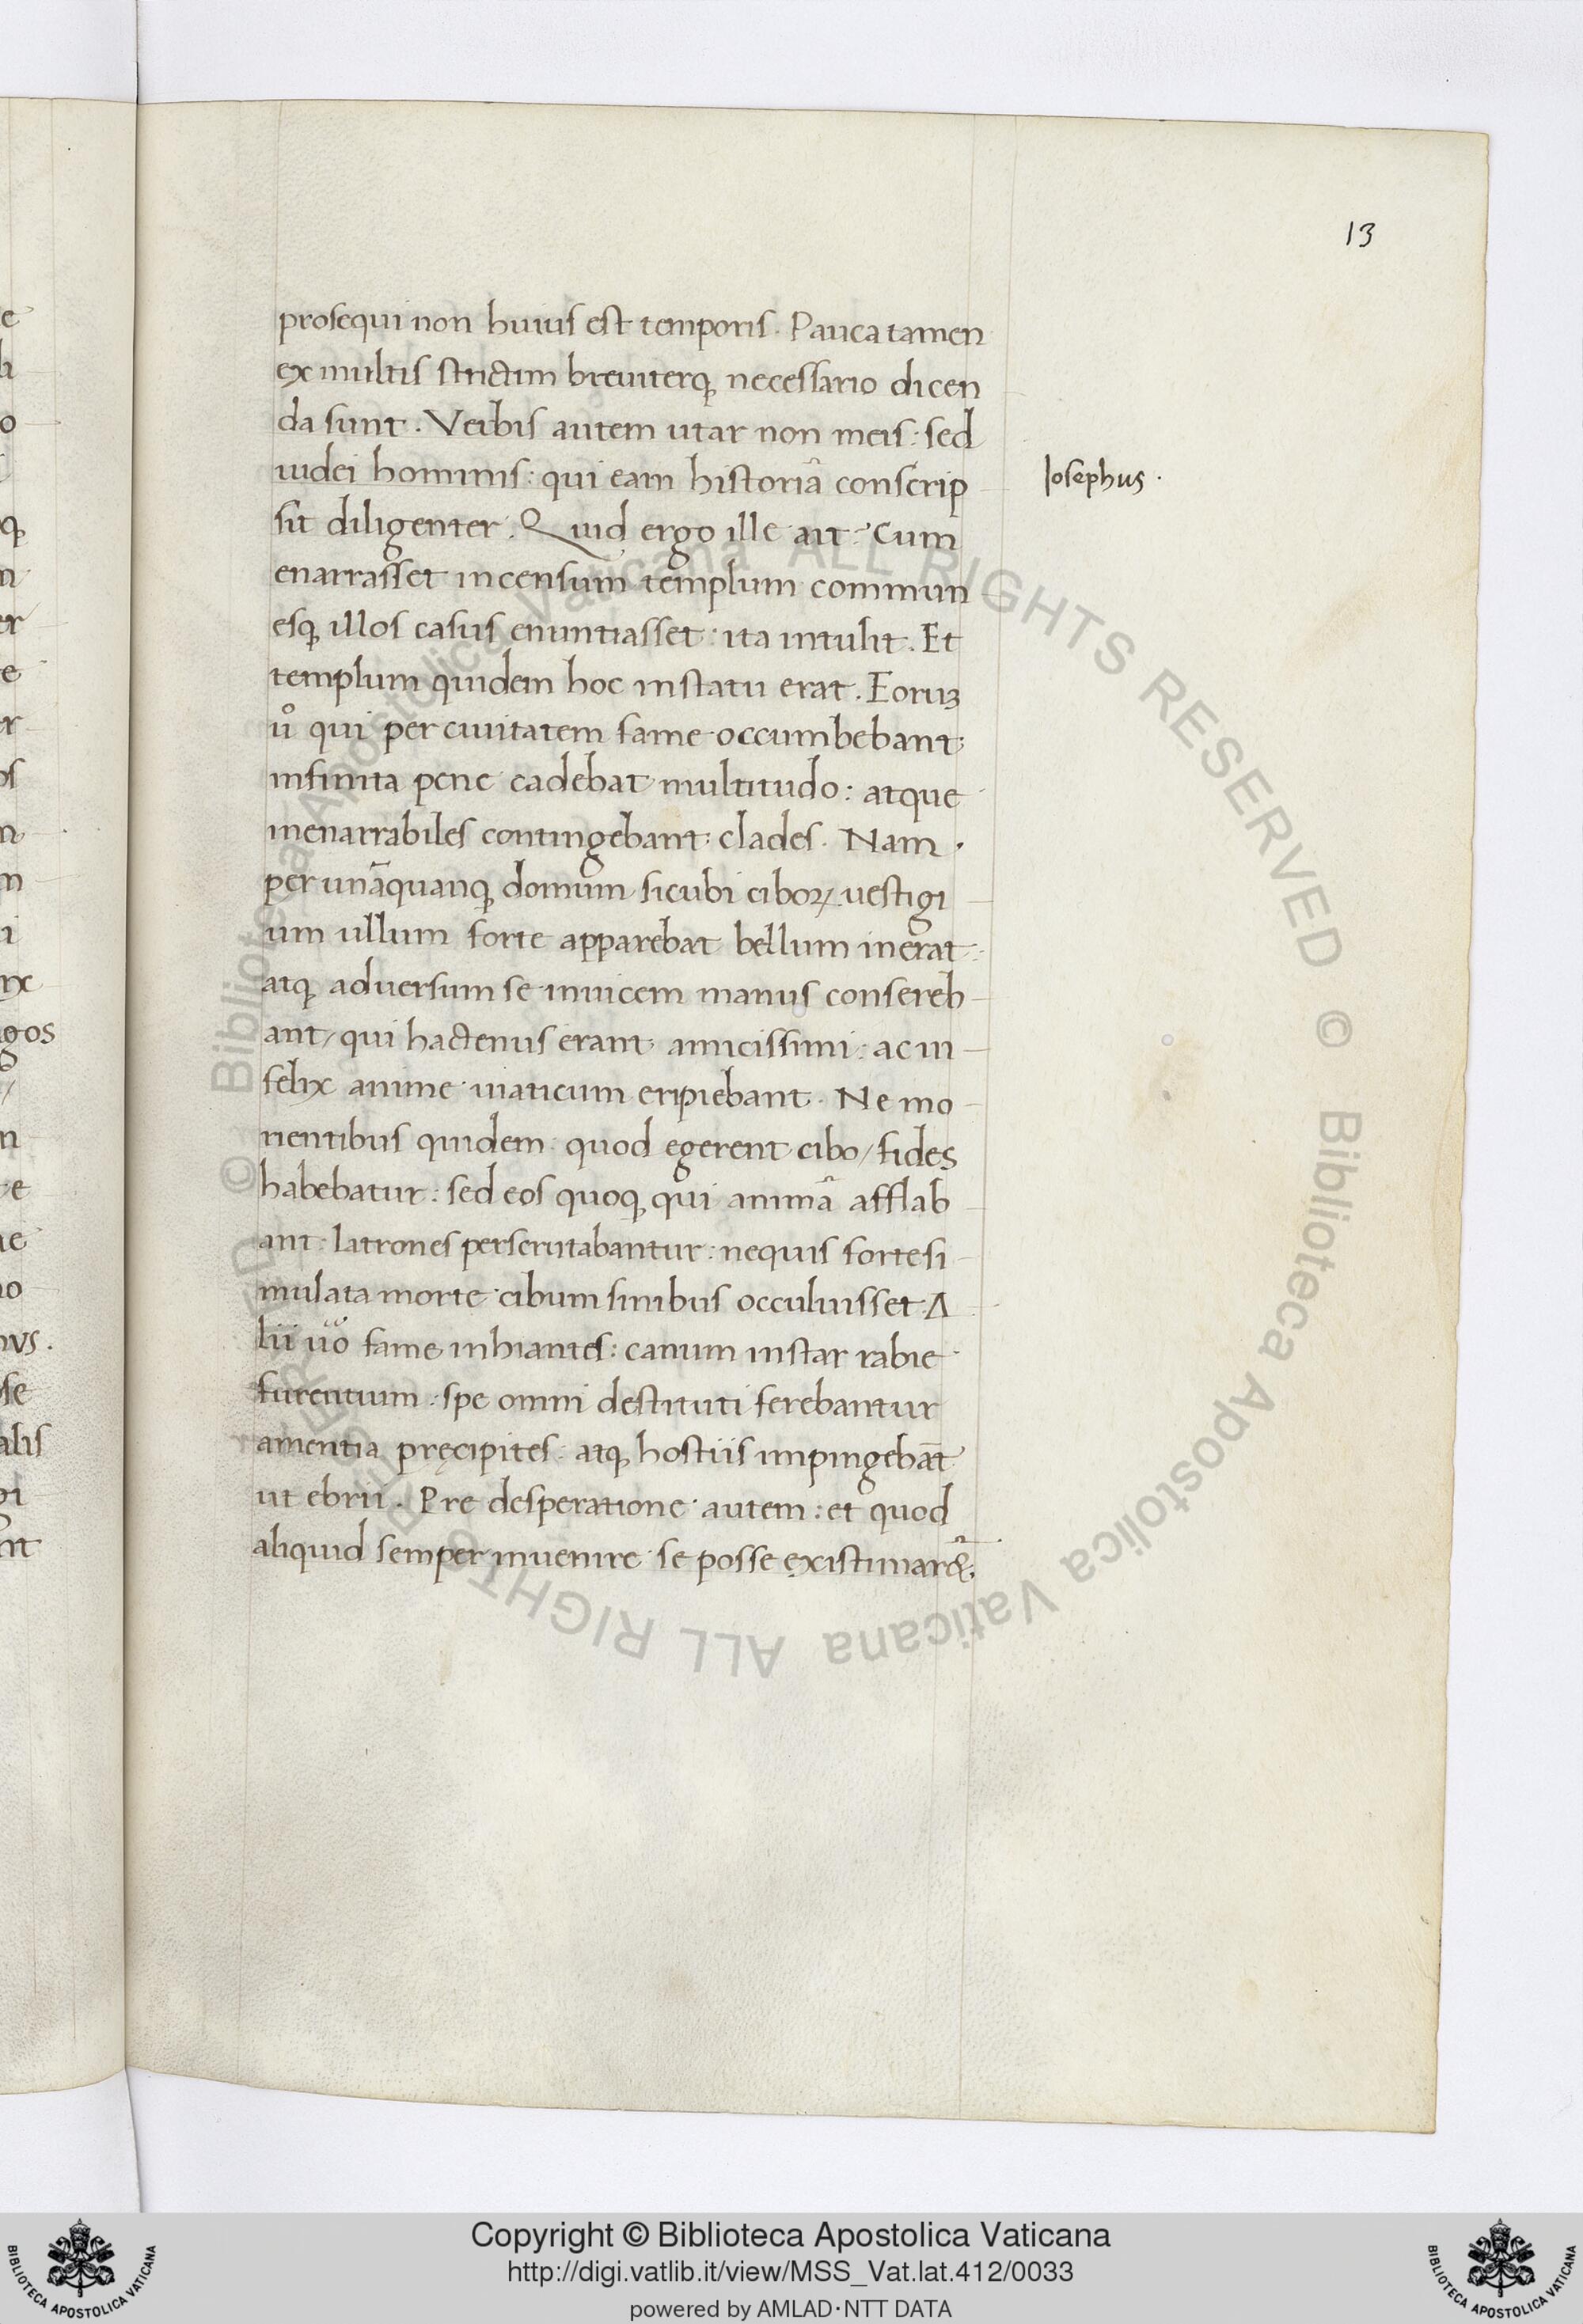 13
prosequi non huius est temporis. Pauca tamen
ex multis strictim breuiterq; necessario dicen
da sunt. Verbis autem utar non meis: sed
iudei hominis: qui eam historiā conscrip
Iosephus.
sit diligenter. Quid ergo ille ait? Cum
enarrasset incensum templum commun
esq; illos casus enuntiasset: ita intulit. Et
templum quidem hoc in statu erat. Eoruꝫ
uͦ qui per ciuitatem fame occumbebant:
infinita pene cadebat multitudo: atque
inenarrabiles contingebant: clades. Nam.
per unāquanq; domum sicubi ciboꝝ uestigi
um ullum forte apparebat bellum inerat:
atq; aduersum se inuicem manus consereb
ant/ qui hactenus erant amicissimi: ac in
felix anime uiaticum eripiebant. Ne mo
rientibus quidem quod egerent cibo/ fides
habebatur: sed eos quoq; qui animā afflab
ant: latrones perscrutabantur: nequis forte si
mulata morte cibum sinibus occuluisset. A
lii uo fame inhiantes: canum instar rabie
furentium: spe omni destituti ferebantur
amentia pręcipites: atq; hostiis impingebāt
ut ebrii. Pre desperatione autem: et quod
aliquid semper inuenire se posse existimar&̄.
e
h
o
q;
n
er
e
er
os
n
m
i
rx
gos
n
e
ne
no
nvs.
se
alis
gi
nt
© Biblioteca Apostolica Vaticana ALL RIGHTS RESERVED © Biblioteca Apostolica Vaticana ALL RIGHTS RESERVED
Copyright © Biblioteca Apostolica Vaticana
http://digi.vatlib.it/view/MSS_Vat.lat.412/0033
powered by AMLAD·NTT DATA
BIBLIOTECA APOSTOLICA VATICANA
BIBLIOTECA APOSTOLICA VATICANA